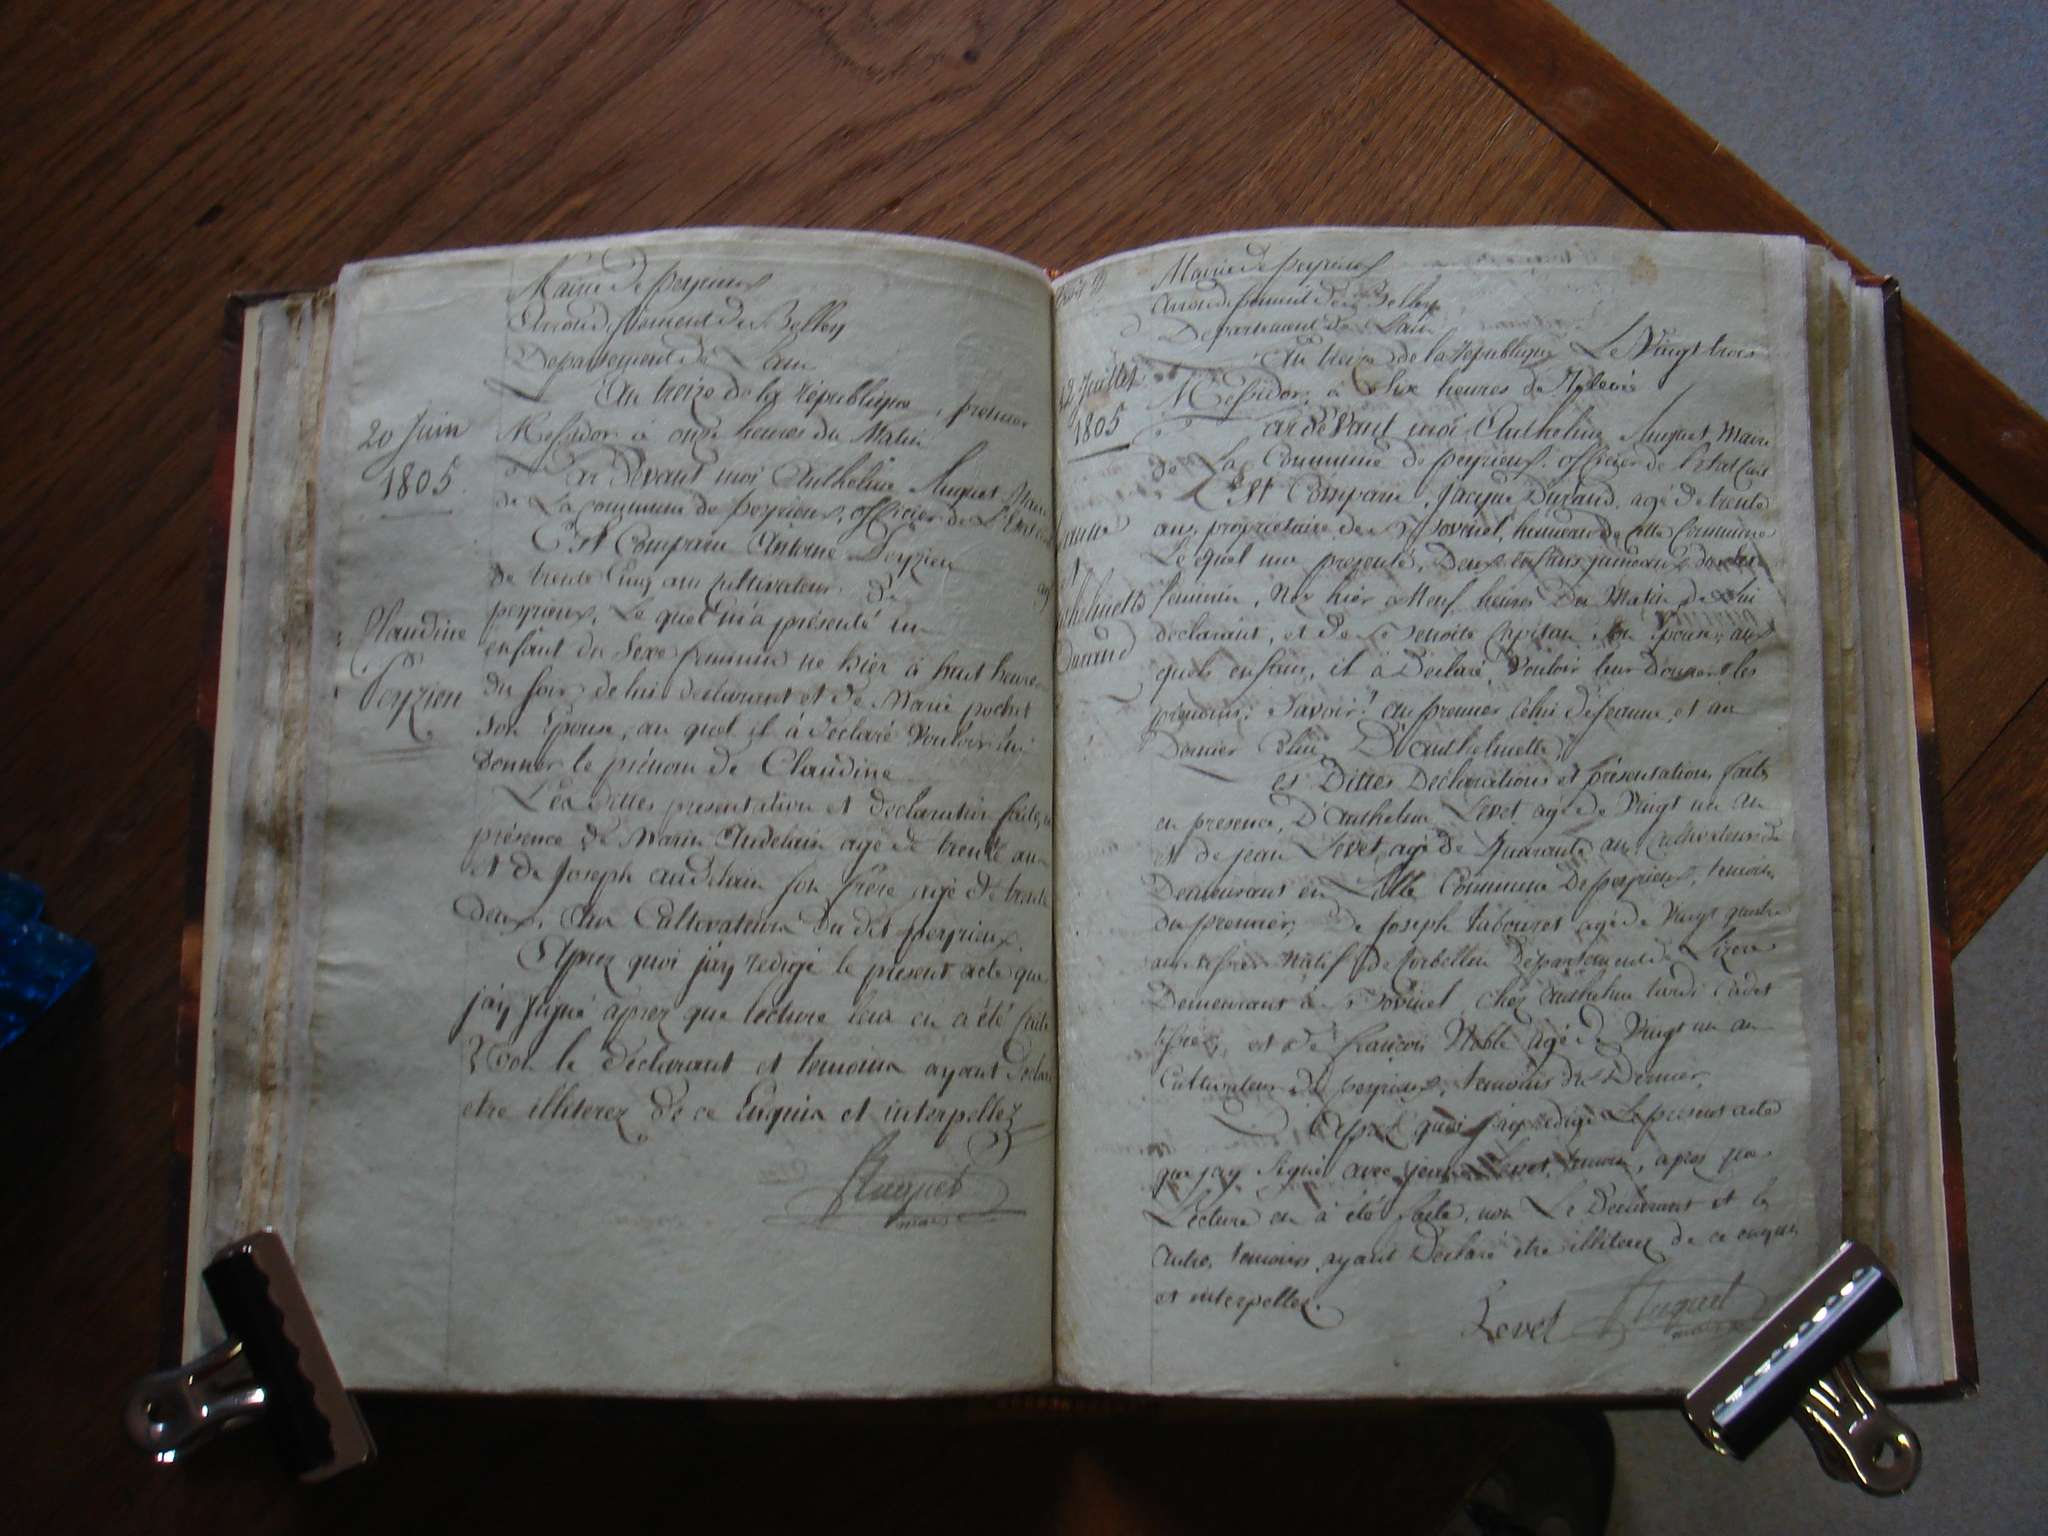 Mairie de peyrieux
Arrondissement de Belley
Departement de Lain
An treize de la republique, premier
Messidor à onze heures du Matin
20 Juin
1805
Par devant moi Anthelme Huguet Maire
de La commune de peyrieux, officier de L'Etat Civil
Est Comparu Antoine Peyzieu agé
de trente Cinq ans cultivateur de
peyrieux, Le quel m'a présenté un
Claudine
Peyzieu
enfant du Sexe feminin né hier à huit heures
du soir, de lui declarant et de Marie pochet
son Epouse, au quel il à déclaré Vouloir lui
donner le prénom de Claudine
Les dittes presentation et declaration faites en
présence de Marin Andelain agé de trente ans
et de Joseph andelain son frère agé de trente
deux, ans Cultivateurs du dit peyrieux.
Aprez quoi j'ay redigé le present acte que
j'ay signé aprez que lecture leur en a été faite
Non le déclarant et temoins ayant déclaré
etre illiterez de ce Enquis et interpellez
Huguet
maire
Mairie de peyrieux
Arrondissement de Belley
Departement de Lain
An treize de la republique Le Vingt trois
Messidor, à Six heures de Relevée
12 Juillet
1805
Par devant moi Anthelme Huguet Maire
de La Commune de peyrieux officier de l'etat Civil
Est Comparu, Jacque Durand, agé de trente
ans, proprietaire de hameau de cette Commune
Le quel m'a presenté, Deux enfans jumeaux
Jeanne
et
anthelmette
Durand
feminin, Nés hier à Neuf heures du Matin de lui
declarant, et de Benoite Capitan son épouse, aux
quels enfans, il à Déclaré Vouloir leur donner les
prénoms, Savoir! au premier Celui de Jeanne, et au
Dernier Celui D'anthelmette
Les Dittes Declarations et présentation faites
en presence, D'Anthelme Levet agé de Vingt un an
et de jean Levet agé de Quarante ans Cultivateurs
Demeurant en Cette Commune de peyrieux, temoins
du premier, De Joseph tabouret agé de Vingt quatre
ans natif de Département de Lizere
Demeurant à chez Anthelme Cadet
et de françois Noble agé de Vingt un an
Cultivateur de peyrieux, temoins du Dernier,
Aprez quoi j'ay redigé Le present acte
que j'ay Signé avec jean Levet, temoin, apres que
Lecture en à été faite, non Le Declarant et les
autres temoins ayant Declaré etre illiterez de ce enquis
et interpellez.
Levet
Huguet
maire